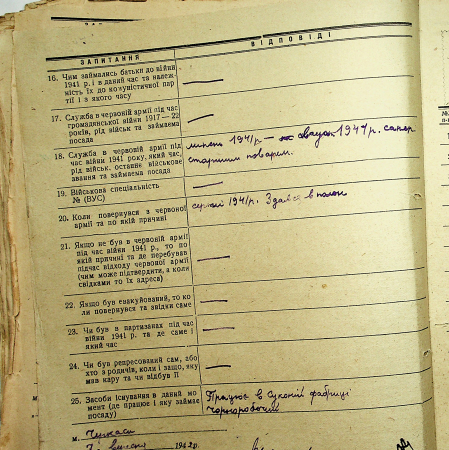 ЗАПИТАННЯ ВІДПОВІДІ
16. Чим займались батьки до війни
1941 р. і в даний час та належ-
ність їх до комуністичної пар-
тії і з якого часу
17. Служба в червоній армії під час
громадянської війни 1917—22
років, рід військ та займаема
посада
18. Служба в червоній армії під
час війни 1941 року, який час,
рід військ, останнє військове
звання та займаєма посада
липень 1941р – 1941р. сапер
старшим поваром.
19. Військова спеціальність
№ (ВУС)
20. Коли повернувся в червоної
армії та по якій причині
серпні 1941р. Здався в полон
21. Якщо не був в червоній армії
під час війни 1941 р., то по
якій причині та де перебував
підчас відходу червоної армії
(чим може підтвердити, а коли
свідками то їх адреса)
22. Якщо був евакуйований, то ко-
ли повернувся та звідки саме
23. Чи був в партизанах під час
війни 1941 р. та де саме і
який час
24. Чи був репресований сам, або
хто з родичів, коли і защо, яку
мав кару та чи відбув її
25. Засоби існування в даний мо-
мент (де працює і яку займає
посаду)
Працює в суконій фабриці
Чорноробочий
м. Черкаси
1942р.